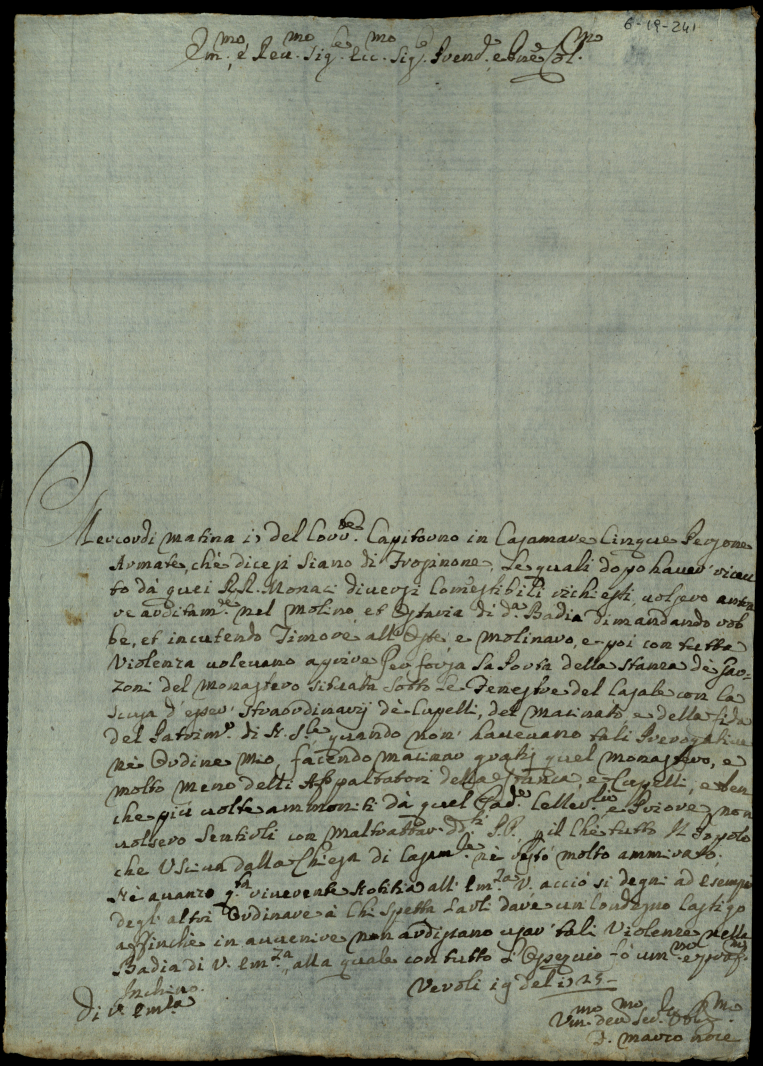 6-19-241
Em.mo, é Reu.mo Sig.re Ecc.mo Sig.re Prend.e e bne Col.mo
Mercordi matina 17 del Corr.te Capitorno in Casamare Cinque Persone
Armate, chè dicesi siano di Frosinone, Le quali dopo hauer' riceuu
to dà quei RR. Monaci diuersi Comestibili richiesti, uolsero anda
re arditam.te nel Molino, et Ostaria di d.a Badia dimandando rob
be, et incutendo Timore all' Oste, e molinaro, e poi con tutta
Violenza uoleuano aprire per forza la Porta della stanza dè Gar-
zoni del Monastero situata sotto le Fenestre del Casale con la
scusa d'esser' straordinarij dè Capelli, del macinato, e della
del Patrim.o di S. S.ta quando non' haueuano tali Prerogatiue
nè Ordine mio, facendo macinar gratis quel monastero, e
molto meno delli Appaltatori della e Capelli, e ben
che più uolte ammoniti dà quel Pad.e Celler.io e Priore non
uolsero sentirli con maltrattar dd.ti P.P., il che tutto Il Popolo
che Usciua dalla Chiesa di Casam.e nè restò molto ammirato,
Nè auanzo q.sta riuerente Notitia all' Em.za V. acciò si degni ad esempio
degli altri Ordinare à chi spetta farli dare un Condegno Castigo
affinchè in auuenire non ardiscano usar' tali Violenze nella
Badia di V. Em.za, alla quale con tutto l'Ossequio fò um.mo e prof.mo
Inchino.
Veroli 19 del 1725
Di V. Em.za
Um.mo deu.mo Ser.re Obl.mo
D. Mauro